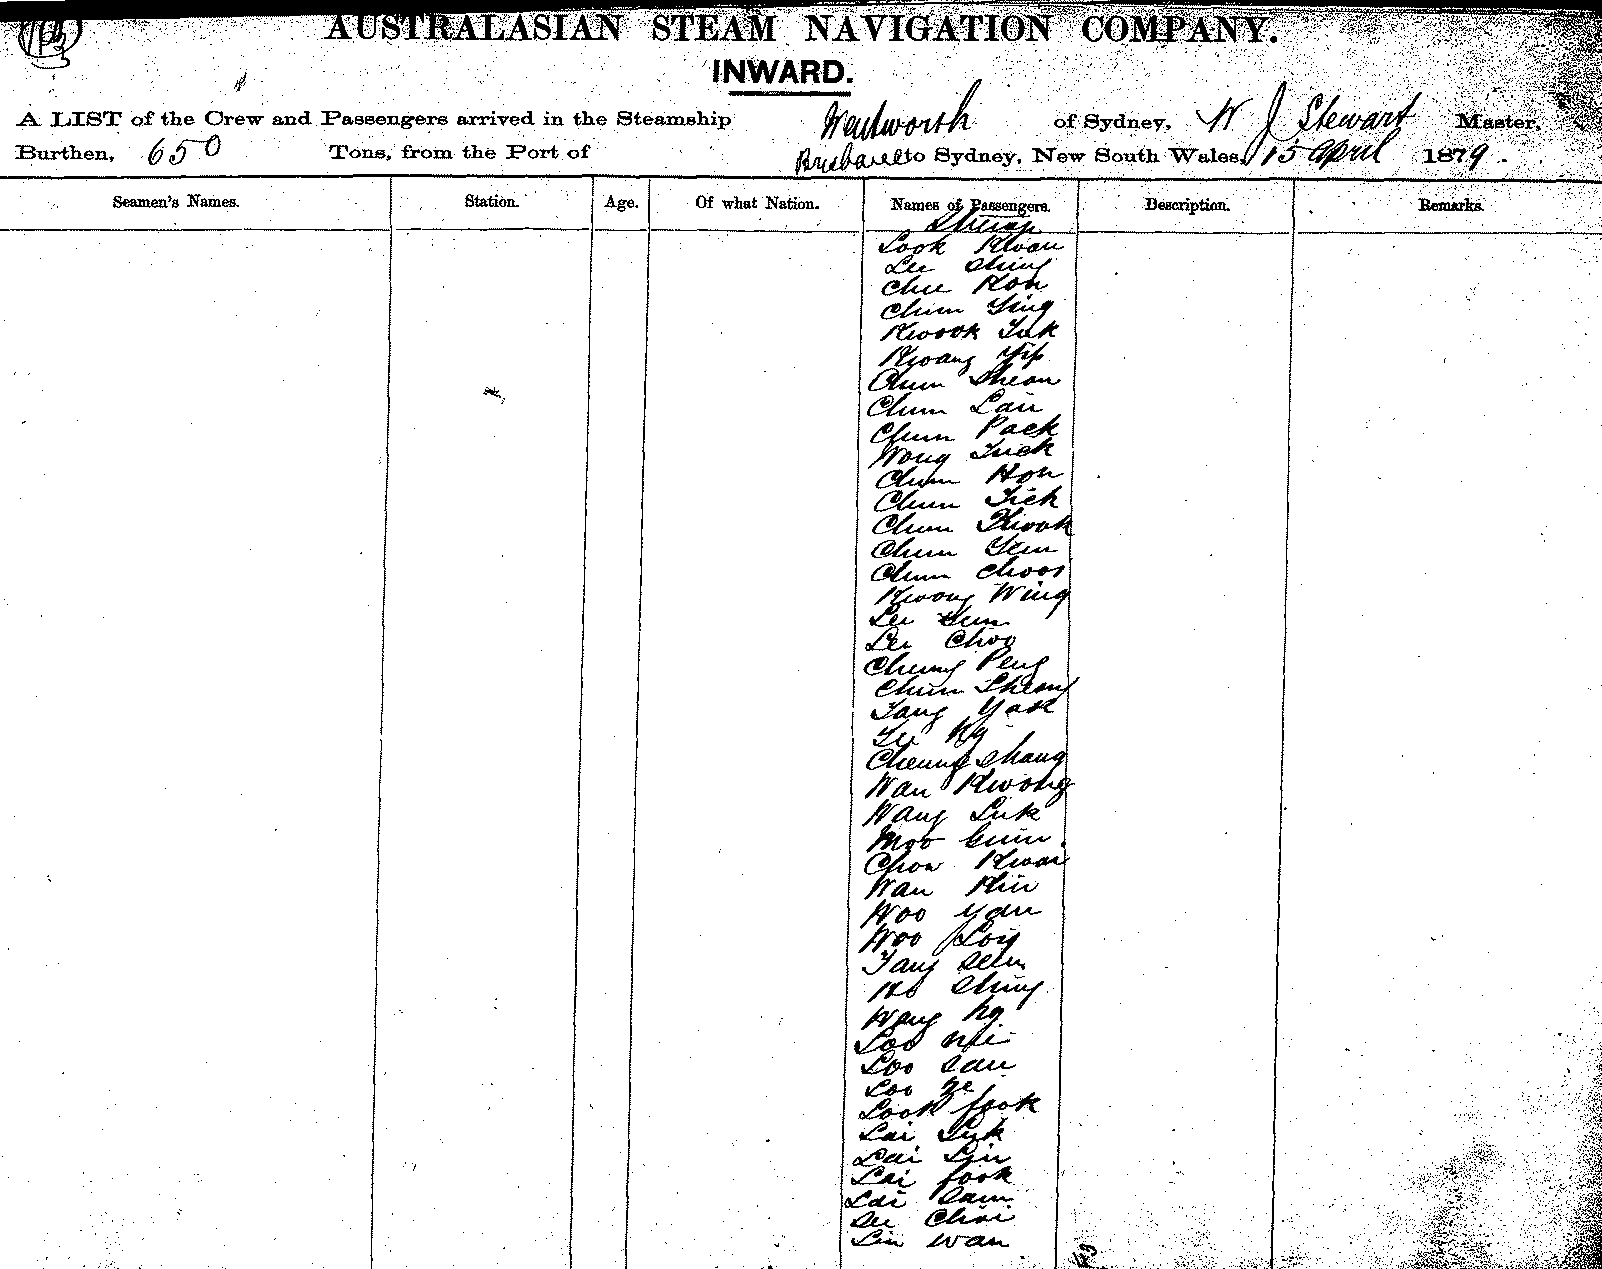 AUSTRALASIAN STEAM NAVIGATION COMPANY.
INWARD.
A LIST of the Crew and Passengers arrived in the Steamship Wentworth of Sydney, W J Stewart Master,
Burthen, 650 Tons, from the Port of Brisbane to Sydney, New South Wales, 15 April 1879.
Seamen's Names. Station. Age. Of what Nation. Names of Passengers. Description. Remarks.
Look Kwan
Lee Ching
Chee Kon
Chum Ying
Kwook Tuk
Kwang Yip
Chum Sheon
Chum Lan
Chum Pack
Wong Tuck
Chum Hon
Chum Tick
Chum Kwok
Chum Yem
Chum Choos
Kwong Wing
Lee Yun
Lee Choo
Cheung Peng
Chum Sheong
Tang Yak
Lee Ng
Cheung Shang
Wan Kwong
Wang Luk
Moo Guin
Chow Kwai
Wan Hin
Woo Yan
Woo Loy
Tang Sem
Ho Ching
Wang Ng
Loo Mi
Loo San
Loo Ye
Look fook
Lai Luk
Lai Lin
Lai fook
Lai Sam
Lee Choi
Lin Wan
43